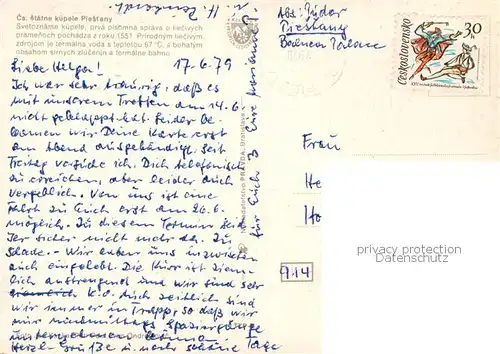 Čs. štátne kúpele Piešťany
Svetoznáme kúpele, prvá písomná správa o liečivých
prameňoch pochádza z roku 1551. Prírodným liečivým
zdrojom je termálna voda s teplotou 67 °C, s bohatým
obsahom sírnych zlúčenín a termálne bahno.
Liebe Helga! 17.6.79
Ich war sehr traurig, daß es
mit unserem Treffen am 14.6.
nicht geklappt hat. Leider be-
kamen wir Deine Karte erst
am Abend ausgehändigt. Seit
Freitag versuche ich, Dich telefonisch
zu erreichen, aber leider auch
vergeblich. Von uns ist eine
Fahrt zu Euch erst am 26.6.
möglich. Zu diesem Termin seid
Ihr sicher nicht mehr da. Zu
schade. Wir haben uns inzwischen
auch eingelebt. Die Kur ist ziem-
lich anstrengend und wir sind sehr
K.O. Auch zeitlich sind
wir immer in Trapp, so daß wir
nur nachmittags Spaziergänge
unternehmen können.
Herzl. Grüße u. noch schöne Tage
für Euch 3 Eure Marianne
Vydavateľstvo PRAVDA, Bratislava
Abs.
Piešťany
Balnea Palace
Československo
3,0
Frau
He
Ho
914
privacy protection
Datenschutz